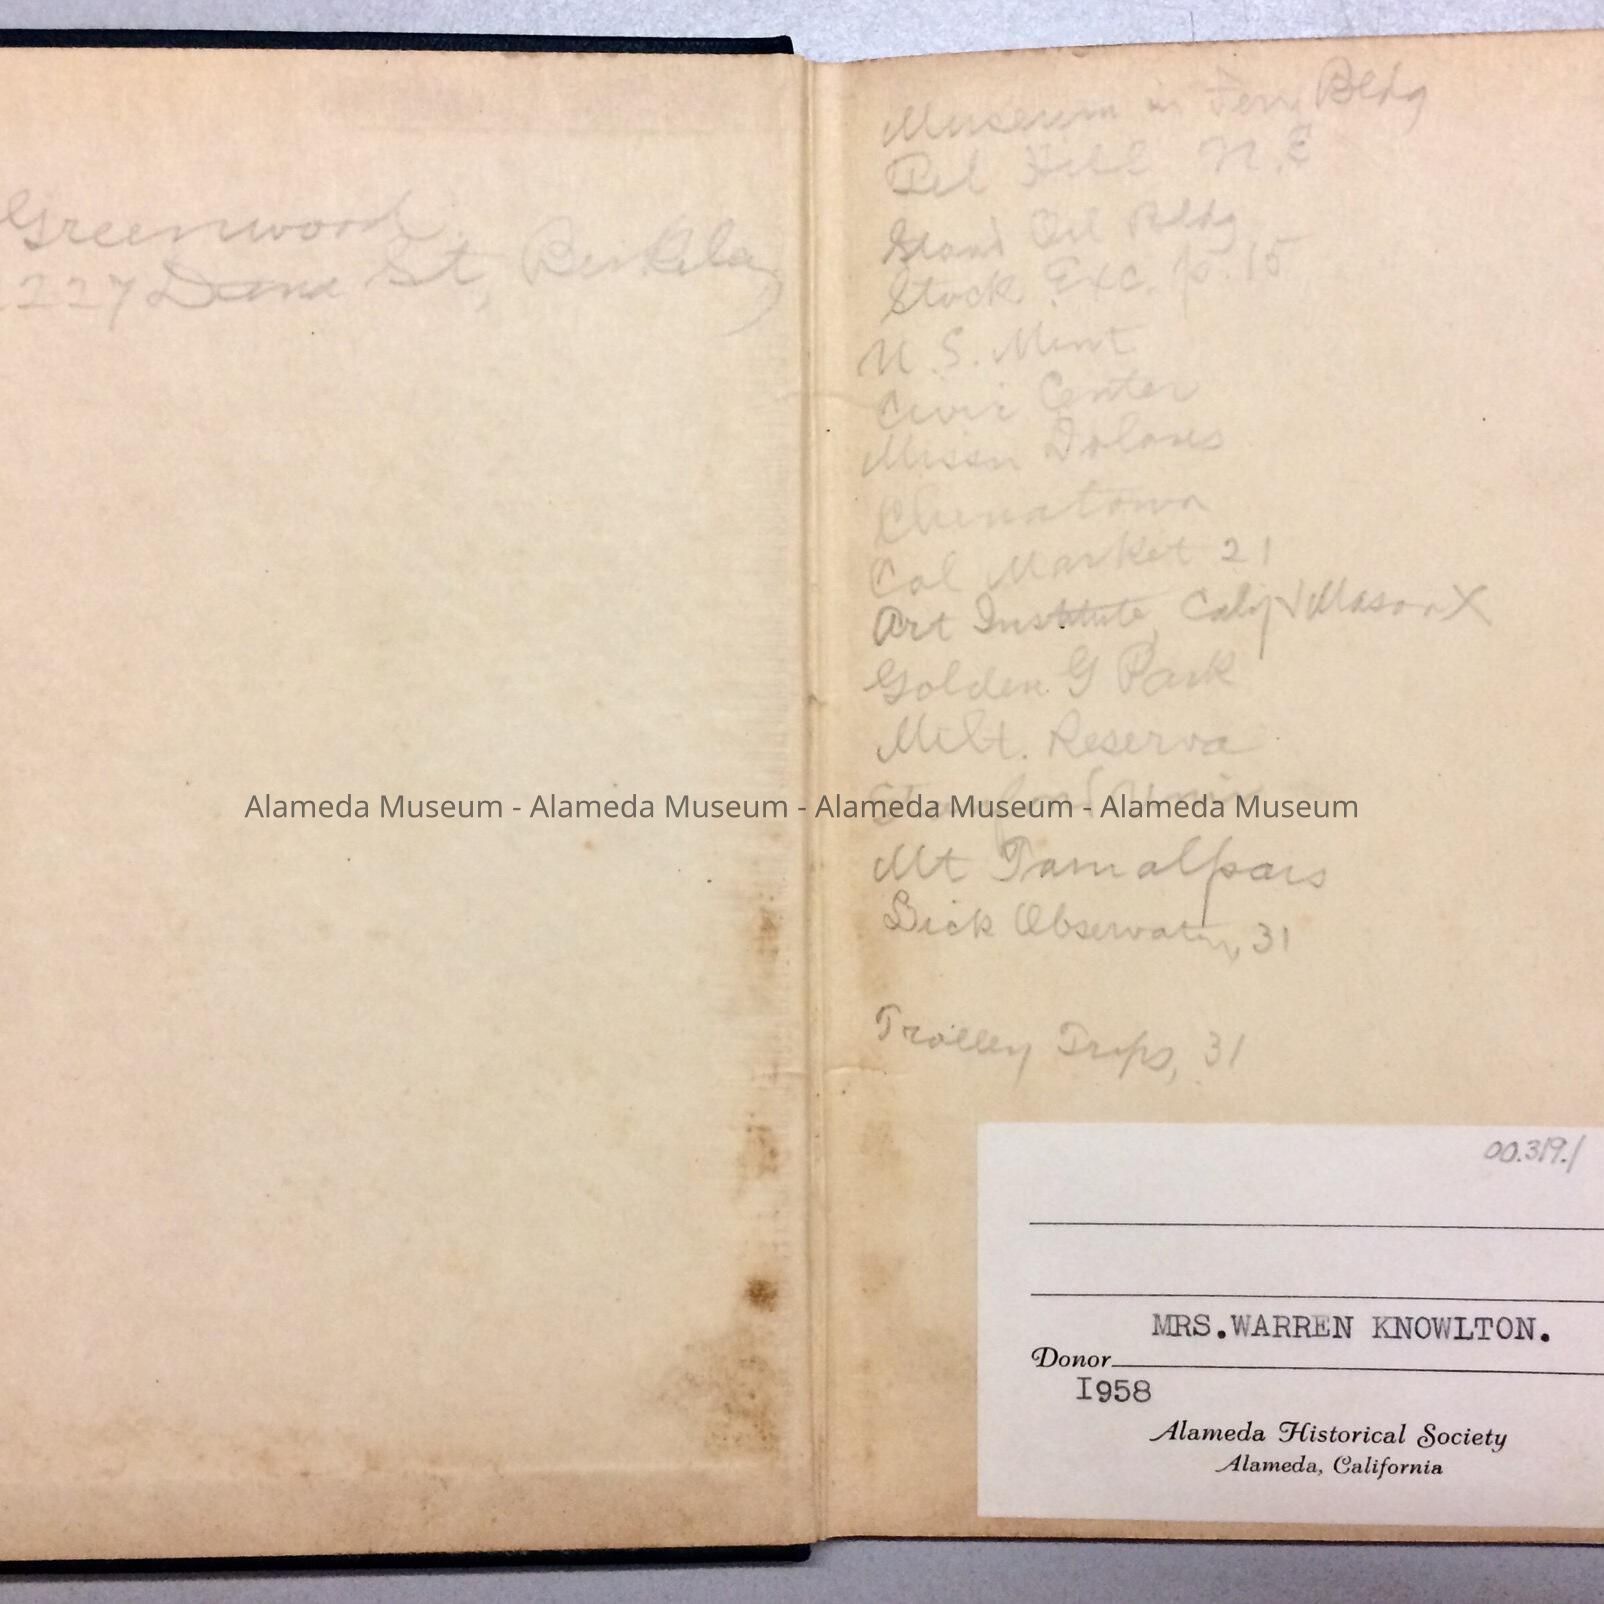 Greenwood
2227 Dana St, Berkeley
Museum in Ferry Bldg
Tel Hill N.E
Stand Oil Bldg
Stock Exc. p. 15
U.S. Mint
Civic Center
Missn Dolores
Chinatown
Cal Market 21
Art Institute, Calif Mason X
Golden G Park
Milt. Reserva
Stanford Univ
Alameda Museum - Alameda Museum - Alameda Museum - Alameda Museum
Mt Tamalpais
Lick Observatory, 31
Trolley Trips, 31
00.319.1
MRS.WARREN KNOWLTON.
Donor
I958
Alameda Historical Society
Alameda, California